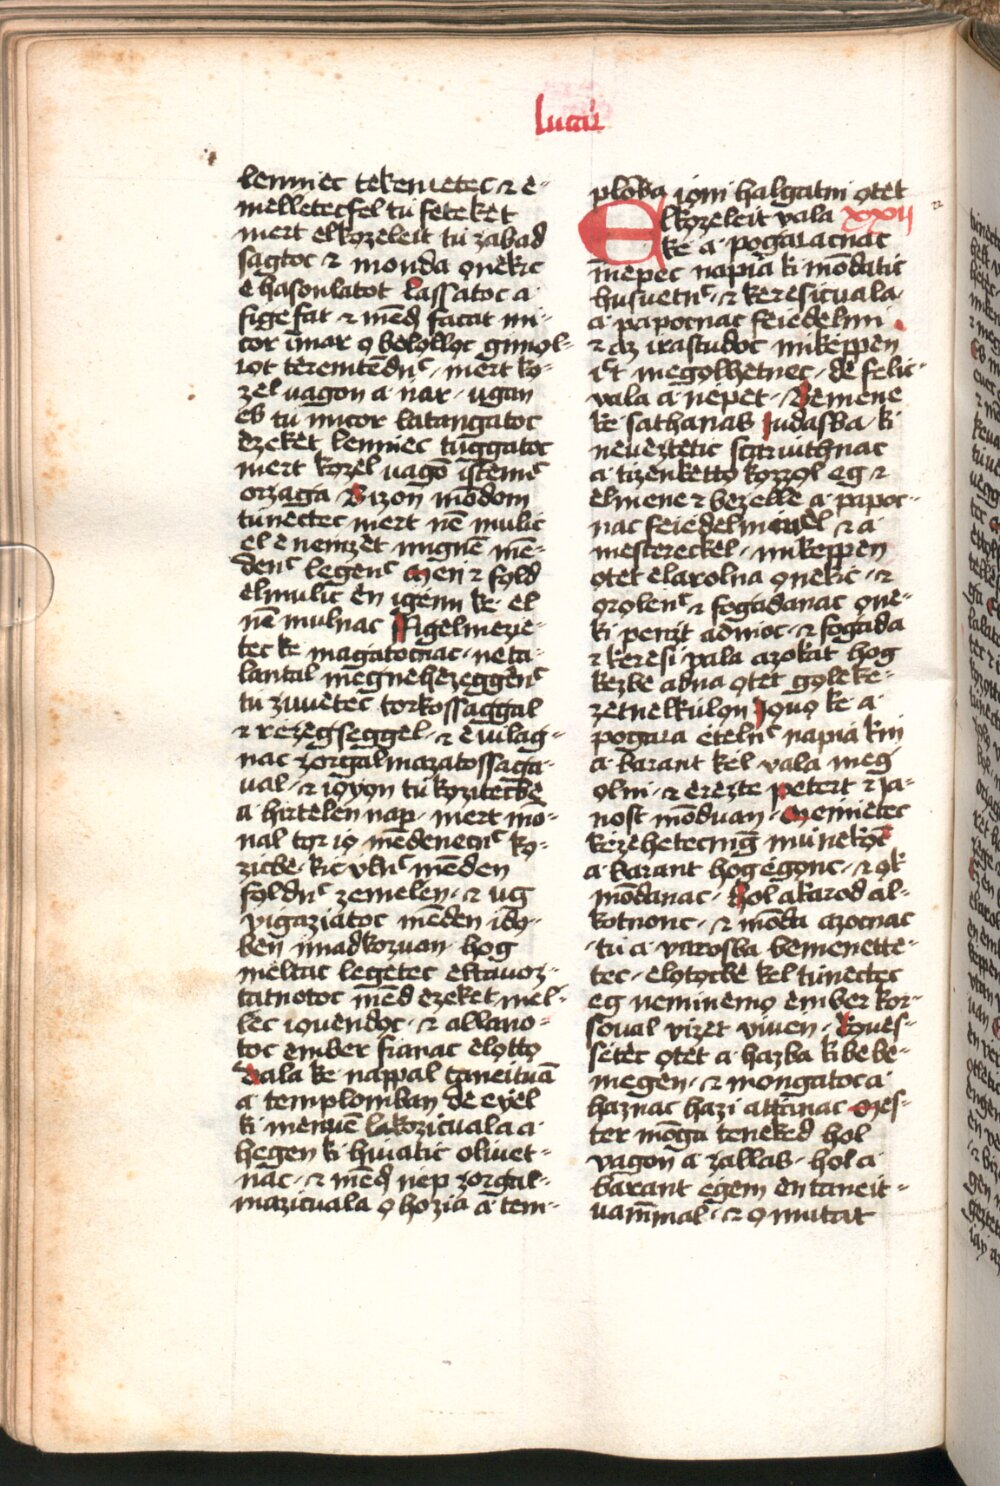 lucaċ
lenniec tekenietec ⁊ e-
melletecfel tu feteket
mert elkozeleit tu zabad
sagtoc ⁊ monda onekic
e hasonlatot Lassatoc a
figefat ⁊ mēd facat mi-
cor imar o belolloc gimol-
lot teremtēdnc̄ mert ko-
zel vagon a ńar · vgan
es tu micor latangatoc
ezeket lenniec tuggatoc
mert kozel vagō istennc̄
orzaga Bizoń mōdom
tunectec mert nē mulic
el e nemzet mignē mē-
denc̄ legenc̄ Meń ⁊ fold
elmulic en igeim ke· el
nē mulnac Figelmeze-
tec ke magatocnac· neta-
lantal megnehezeggenc̄
tu zuuetec torkossaggal
⁊ rezegseggel· ⁊ e vilag-
nac zorgalmazatossaga-
ual· ⁊ ioyon tu koztecbe
a hirtelen nap· mert mo-
nal tor io mēdenecnc̄ ko-
zicbe· kic vlnc̄ mēden
foldnc̄ zemelen· ⁊ ug
vigaziatoc mēden ido-
ben imadkozuan· hog
meltac legetec eltauoz-
tatnotoc mēd ezeket mel-
lec iouendoc· ⁊ allano-
toc ember fianac elotto
Vala ke nappal taneituā
a templomban de eyel
ki menuē lakozicuala a
hegen ki hiuatic oliuet-
nac· ⁊ mēd nep zorgal-
mazicuala o hozia a tem-
plōba ioni halgatni otet
Elkozeleit vala XXII
ke a· pogaćacnac
īnepec napia ki mōdatic
husuetnc̄· ⁊ keresicuala
a papocnac feiedelmi
⁊ az irastudoc mikeppen
ict megolhetnec· de felic
vala a nepet· Bemene
ke sathanas Judasba ki
neueztetic scariuthnac
a tizenketto kozzol eg ⁊
elmene ⁊ bezelle a· papoc-
nac feiedelmiuel ⁊ a
mestereckel· mikeppen
otet elarolna onekic· ⁊
orolenc̄ ⁊ fogadanac one-
ki penzt adnioc· ⁊ fogada
⁊ keresi vala azokat hog
kezbe adna otet goleke-
zetnelkulon Jouo ke a
pogaća etelnc̄ napia kin
a· barant kel vala meg
olni· ⁊ erezte petert ⁊ Ja-
nost mōduan· Menietec
kezehetecmg munekōc
a· barant hog egonc· ⁊ ok
mōdanac· Hol akarod al-
kotnonc· ⁊ mōda azocnac
·tu a· varosba bemenette-
tec· elotocbe kel tunectec
eg neminemo ember kor-
soual vizet viuen· Koues-
setec otet a· hazba ki be be-
megen· ⁊ mongatoc a
haznac hazi attanac Mes-
ter mōga teneked hol
vagon a zallas· hol a
barant egem en taneit-
uaīmal· ⁊ o mutat